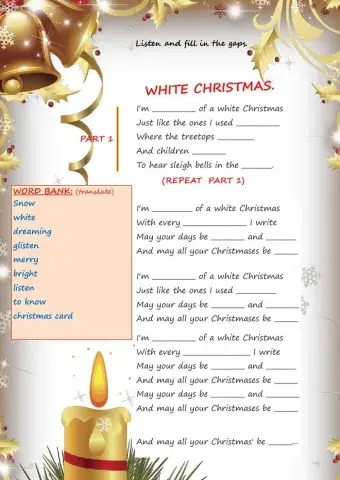 Listen and fill in the gaps.
WHITE CHRISTMAS.
I'm __________ of a white Christmas
Just like the ones I used __________
PART 1
Where the treetops ________
And children ________
To hear sleigh bells in the _______.
(REPEAT PART 1)
WORD BANK: (translate)
Snow
white
dreaming
glisten
merry
bright
listen
to know
christmas card
I'm _________ of a white Christmas
With every ______________ I write
May your days be _______ and _______
And may all your Christmases be ______
I'm __________ of a white Christmas
Just like the ones I used _________
May your days be _______ and _______
And may all your Christmases be ______
I'm __________ of a white Christmas
With every _______________ I write
May your days be _______ and _______
And may all your Christmases be ______
May your days be _______ and _______
And may all your Christmases be ______
And may all your Christmas' be ______...